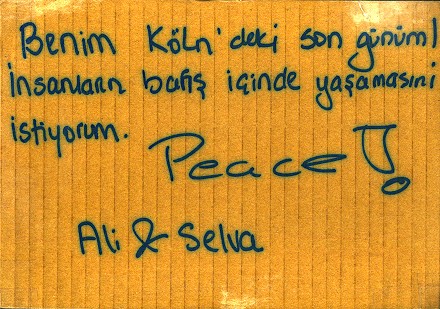 Benim Köln'deki son günüm!
İnsanların barış içinde yaşamasını
istiyorum.
Peace!
Ali & Selva